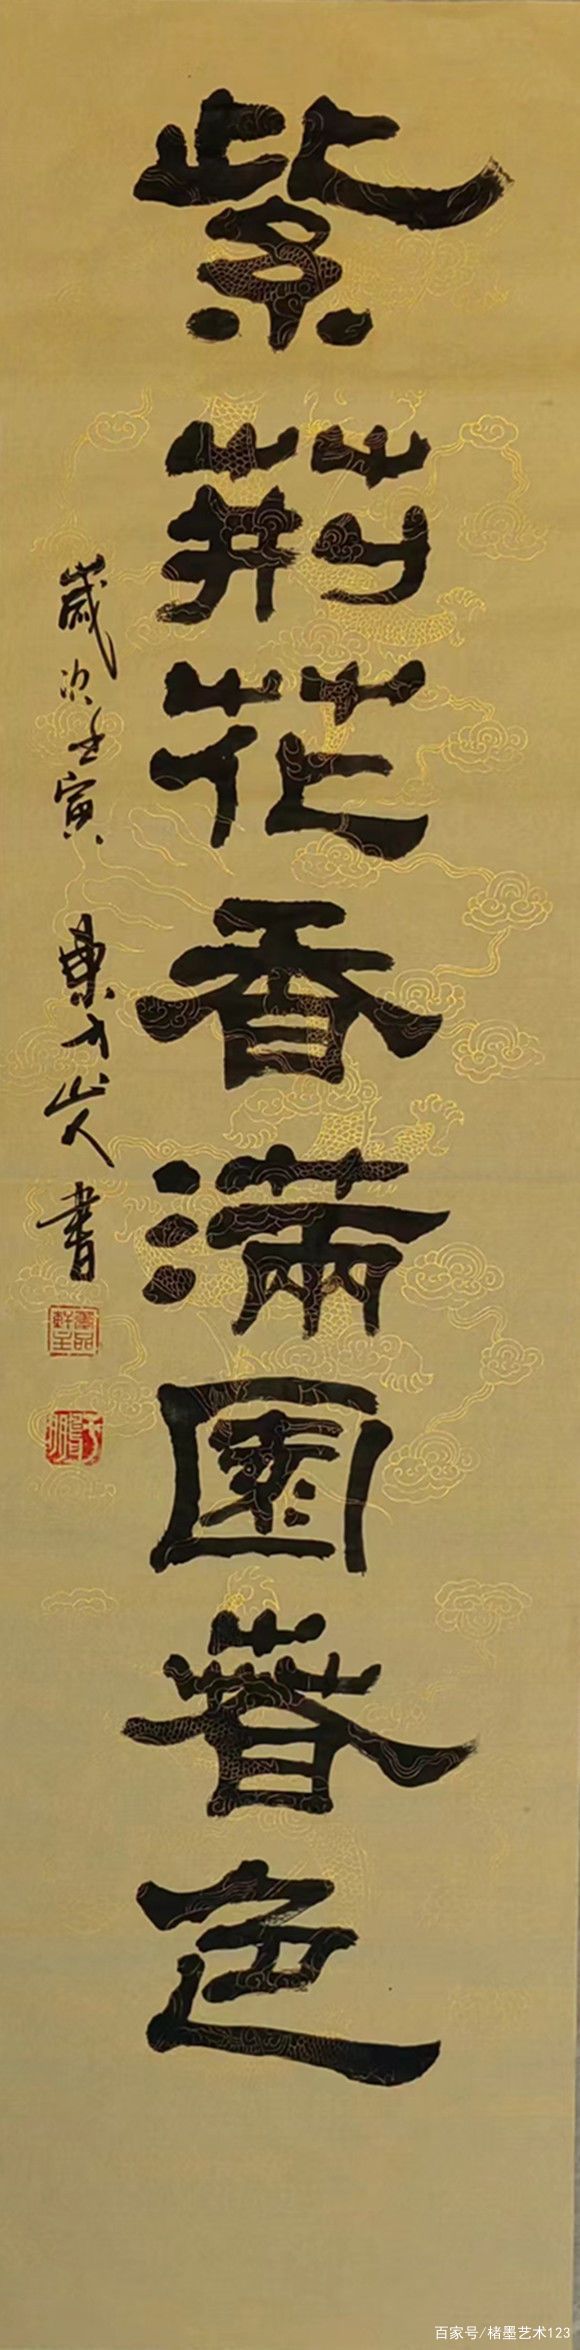 紫荊花香滿園春色
歲次壬寅 東方山人書
百家号/楮墨艺术123